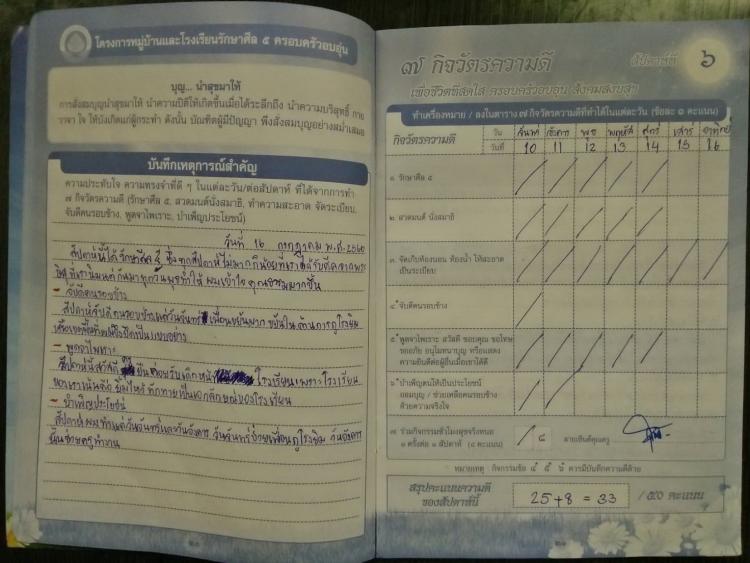 โครงการหมู่บ้านและโรงเรียนรักษาศีล ๕ ครอบครัวอบอุ่น
บุญ... นำสุขมาให้
การสั่งสมบุญนำสุขมาให้ นำความปีติให้เกิดขึ้นเมื่อได้ระลึกถึง นำความบริสุทธิ์ กาย
วาจา ใจ ให้บังเกิดแก่ผู้กระทำ ดังนั้น บัณฑิตผู้มีปัญญา พึงสั่งสมบุญอย่างสม่ำเสมอ
บันทึกเหตุการณ์สำคัญ
ความประทับใจ ความทรงจำที่ดี ๆ ในแต่ละวัน/ต่อสัปดาห์ ที่ได้จากการทำ
๗ กิจวัตรความดี (รักษาศีล ๕, สวดมนต์นั่งสมาธิ, ทำความสะอาด จัดระเบียบ,
จับดีคนรอบข้าง, พูดจาไพเราะ, บำเพ็ญประโยชน์)
วันที่ 16 กรกฎาคม พ.ศ. 2560
สัปดาห์นี้ได้รักษาศีล 5 ซึ่งทุกสัปดาห์ไม่มากก็น้อยที่เราได้รับศีลจากพระ
กันมาทุกวันพุธทำให้ผมเข้าใจ คุณธรรมมากขึ้น
- จับดีคนรอบข้าง
สัปดาห์จับดีคนรอบข้างแค่วันจันทร์ เพื่อนขยันมาก ขยันใน
เป็นแบบอย่าง
- พูดจาไพเราะ
สัปดาห์นี้สวัสดี โรงเรียน เพราะโรงเรียน
ของเราเน้นคือ ยิ้มไหว้ ทักทายเป็นเอกลักษณ์ของโรงเรียน
- บำเพ็ญประโยชน์
สัปดาห์ผมทำแค่วันจันทร์และวันอังคาร วันจันทร์ช่วยเพื่อน วันอังคาร
นั้นช่วยครูทำงาน
๒๐
๗ กิจวัตรความดี
สัปดาห์ที่ ๖
เพื่อชีวิตที่สดใส ครอบครัวอบอุ่น สังคมสงบสุข
ทำเครื่องหมาย / ลงในตาราง ๗ กิจวัตรความดีที่ทำได้ในแต่ละวัน (ข้อละ ๑ คะแนน)
กิจวัตรความดี
วัน จันทร์ อังคาร พุธ พฤหัส ศุกร์ เสาร์ อาทิตย์
วันที่ 10 11 12 13 14 15 16
๑. รักษาศีล ๕ / / / / /
๒. สวดมนต์ นั่งสมาธิ / / / /
๓. จัดเก็บห้องนอน ห้องน้ำ ให้สะอาด
เป็นระเบียบ / / / / / / /
๔. จับดีคนรอบข้าง /
๕. พูดจาไพเราะ สวัสดี ขอบคุณ ขอโทษ
ขออภัย อนุโมทนาบุญ หรือแสดง
ความยินดีต่อผู้อื่นเมื่อเขาได้ดี
๖. บำเพ็ญตนให้เป็นประโยชน์
ออมบุญ / ช่วยเหลือคนรอบข้าง
ด้วยความจริงใจ / /
๗. ร่วมกิจกรรมชั่วโมงสุขจริงหนอ
๑ ครั้งต่อ ๑ สัปดาห์ (๘ คะแนน) / ๘ ลายเซ็นต์คุณครู
หมายเหตุ กิจกรรมข้อ ๔ ๕ ๖ ควรมีบันทึกความดีด้วย
สรุปคะแนนความดี
ของสัปดาห์นี้
25+8 = 33 / ๕๐ คะแนน